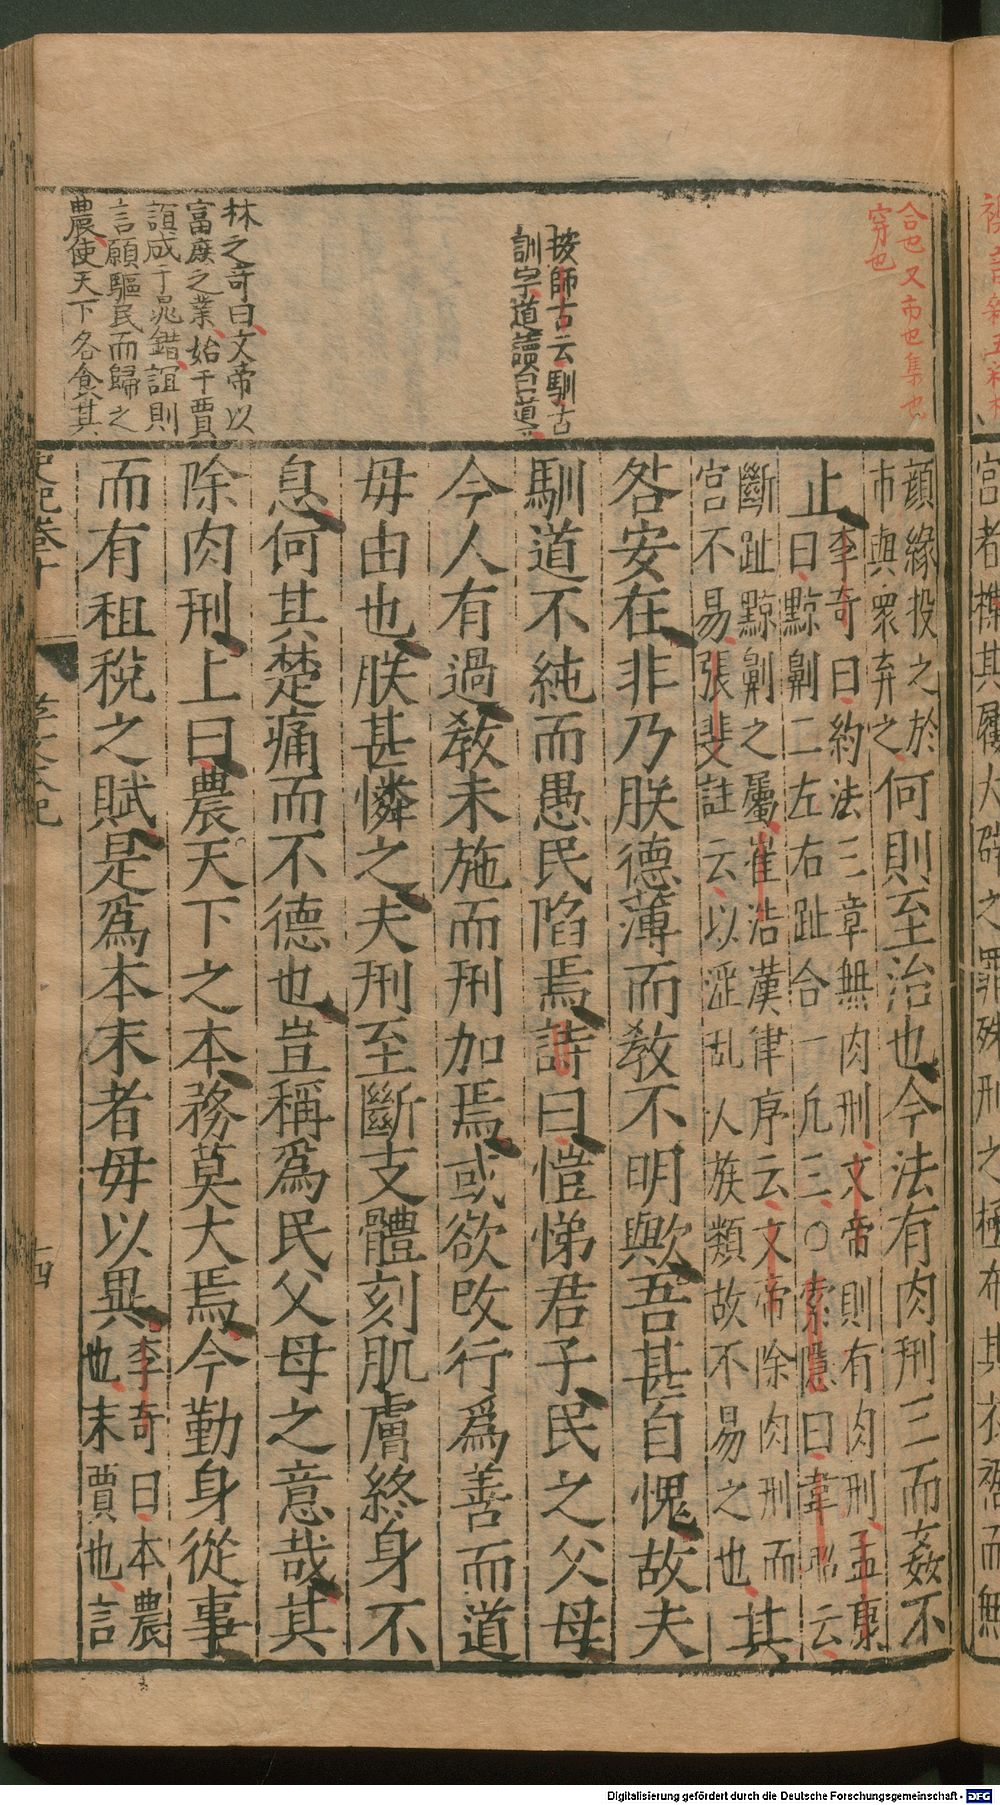 合也又市也集也
穿也
按師古云馴古
訓字道讀曰導
林之奇曰文帝以
富庶之業始于賈
誼成于晁錯誼則
言願驅民而歸之
農使天下各食其
顔緣投之於
市與衆弃之
何則至治也今法有肉刑三而姦不
止
李奇曰約法三章無肉刑文帝則有肉刑孟康
曰黥劓二左右趾合一凢三○索隱曰韋昭云
斷趾黥劓之屬崔浩漢律序云文帝除肉刑而
宮不易張斐註云以淫乱人族類故不易之也
其
咎安在非乃朕德薄而教不明歟吾甚自愧故夫
馴道不純而愚民陷焉詩曰愷悌君子民之父母
今人有過教未施而刑加焉或欲改行爲善而道
毋由也朕甚憐之夫刑至斷支體刻肌膚終身不
息何其楚痛而不德也豈稱爲民父母之意哉其
除肉刑上曰農天下之本務莫大焉今勤身從事
而有租稅之賦是爲本末者毋以異
李奇曰本農
也末賈也言
史記卷十
孝文本紀
十四
Digitalisierung gefördert durch die Deutsche Forschungsgemeinschaft - DFG